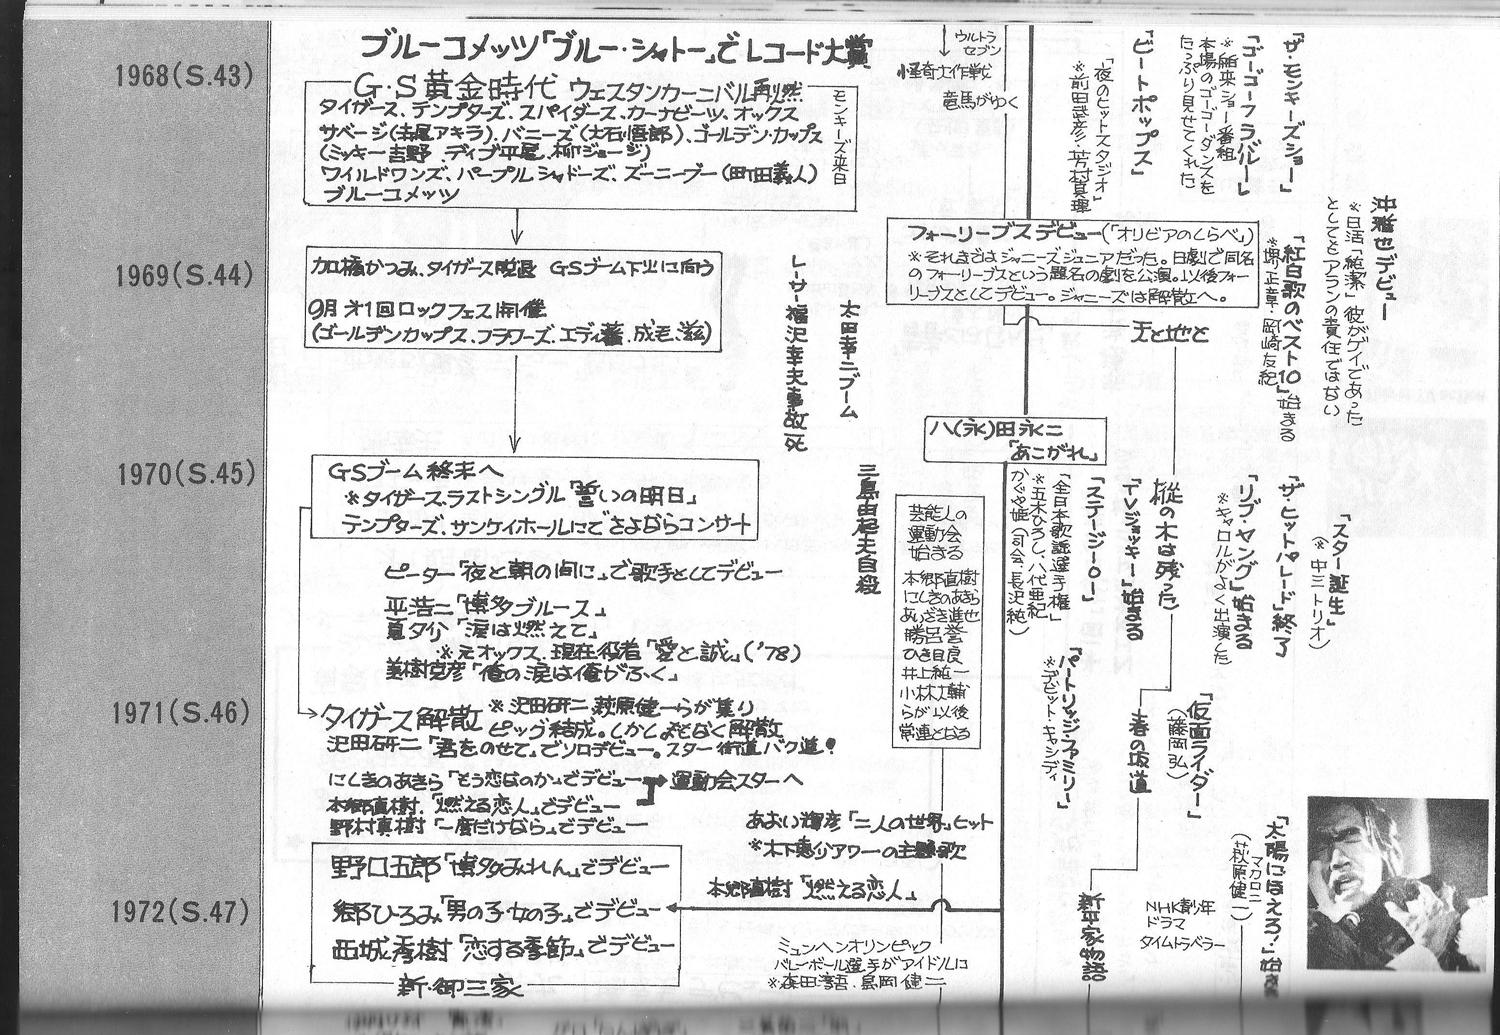 1968(S.43)
ブルーコメッツ「ブルー・シャトー」でレコード大賞
G・S黄金時代 ウェスタンカーニバル再燃
タイガース、テンプターズ、スパイダース、カーナビーツ、オックス
サベージ(寺尾アキラ)、バニーズ(大石悟郎)、ゴールデン・カップス
(ミッキー吉野、デイブ平尾、柳ジョージ)
ワイルドワンズ、パープルシャドーズ、ズーニーブー(町田義人)
ブルーコメッツ
モンキーズ来日
ウルトラ
セブン
怪奇大作戦
竜馬がゆく
「ザ・モンキーズショー」
「ゴーゴーフラバルー」
※舶来ショー番組
本場のゴーゴーダンスを
たっぷり見せてくれた
「ビートポップス」
「夜のヒットスタジオ」
※前田武彦・芳村真理
1969(S.44)
加橋かつみ、タイガース脱退 GSブーム下火に向う
9月 第1回ロックフェス開催
(ゴールデンカップス、フラワーズ、エディ藩、成毛滋)
レーサー福沢幸夫事故死
太田幸二ブーム
フォーリーブスデビュー(「オリビアのしらべ」)
※それまではジャニーズジュニアだった。日劇で同名
のフォーリーブスという題名の劇を公演。以後フォー
リーブスとしてデビュー。ジャニーズは解散へ。
天と地と
沖雅也デビュー
※日活「純潔」彼がゲイであった
としてもアランの責任ではない
「紅白歌のベスト10」始まる
※堺正章・岡崎友紀
八(永)田永二
「あこがれ」
1970(S.45)
GSブーム終末へ
※タイガースラストシングル「誓いの明日」
テンプターズ、サンケイホールにてさよならコンサート
ピーター「夜と朝の間に」で歌手としてデビュー
平浩二「博多ブルース」
夏夕介「涙は燃えて」
※元オックス、現在役者「愛と誠」('78)
美樹克彦「俺の涙は俺がふく」
三島由起夫自殺
芸能人の
運動会
始まる
本郷直樹
にしきのあきら
あいざき進也
勝呂誉
ひき目良
井上純一
小林大輔
らが以後
常連となる
「スター誕生」
(※中三トリオ)
「ザヒットパレード」終了
「リブ・ヤング」始まる
※キャロルがよく出演した
樅の木は残った
「TVジョッキー」始まる
「ステージ101」
「全日本歌謡選手権」
※五木ひろし、八代亜紀
かぐや姫(司会、長沢純)
1971(S.46)
タイガース解散
※沢田研二、萩原健一らが集り
ピッグ結成。しかしまもなく解散
沢田研二「君をのせて」でソロデビュー。スター街道バク進!
にしきのあきら「もう恋なのか」でデビュー
運動会スターへ
本郷直樹、「燃える恋人」でデビュー
野村真樹「一度だけなら」でデビュー
「パートリッジ・ファミリー」
※デビット・キャシディ
春の坂道
「仮面ライダー」
(藤岡弘)
あおい輝彦「二人の世界」ヒット
※木下恵介アワーの主題歌
野口五郎「博多みれん」でデビュー
1972(S.47)
郷ひろみ「男の子女の子」でデビュー
西城秀樹「恋する季節」でデビュー
新・御三家
本郷直樹「燃える恋人」
ミュンヘンオリンピック
バレーボール選手がアイドルに
※森田淳吾、島岡健二
新平家物語
NHK青少年
ドラマ
タイムトラベラー
「太陽にほえろ!」始まる
マカロニ
(萩原健一)